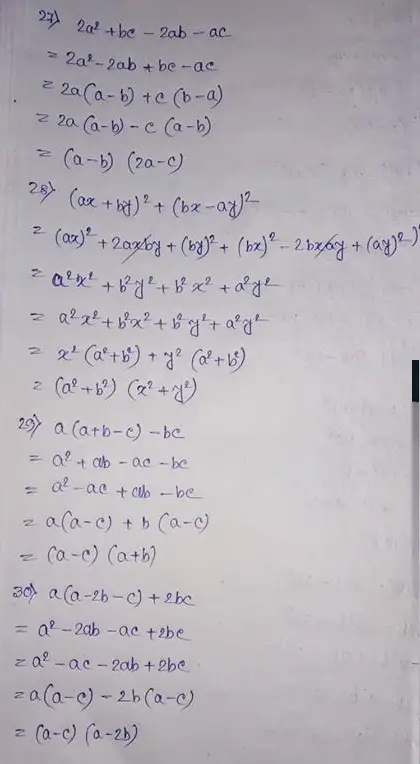 27) 2a² + bc - 2ab - ac
= 2a² - 2ab + bc - ac
= 2a (a-b) + c (b-a)
= 2a (a-b) - c (a-b)
= (a-b) (2a-c)
28) (ax + by)² + (bx - ay)²
= (ax)² + 2axby + (by)² + (bx)² - 2bxay + (ay)²
= a²x² + b²y² + b²x² + a²y²
= a²x² + b²x² + b²y² + a²y²
= x² (a²+b²) + y² (a²+b²)
= (a²+b²) (x²+y²)
29) a (a+b-c) - bc
= a² + ab - ac - bc
= a² - ac + ab - bc
= a (a-c) + b (a-c)
= (a-c) (a+b)
30) a (a-2b-c) + 2bc
= a² - 2ab - ac + 2bc
= a² - ac - 2ab + 2bc
= a (a-c) - 2b (a-c)
= (a-c) (a-2b)